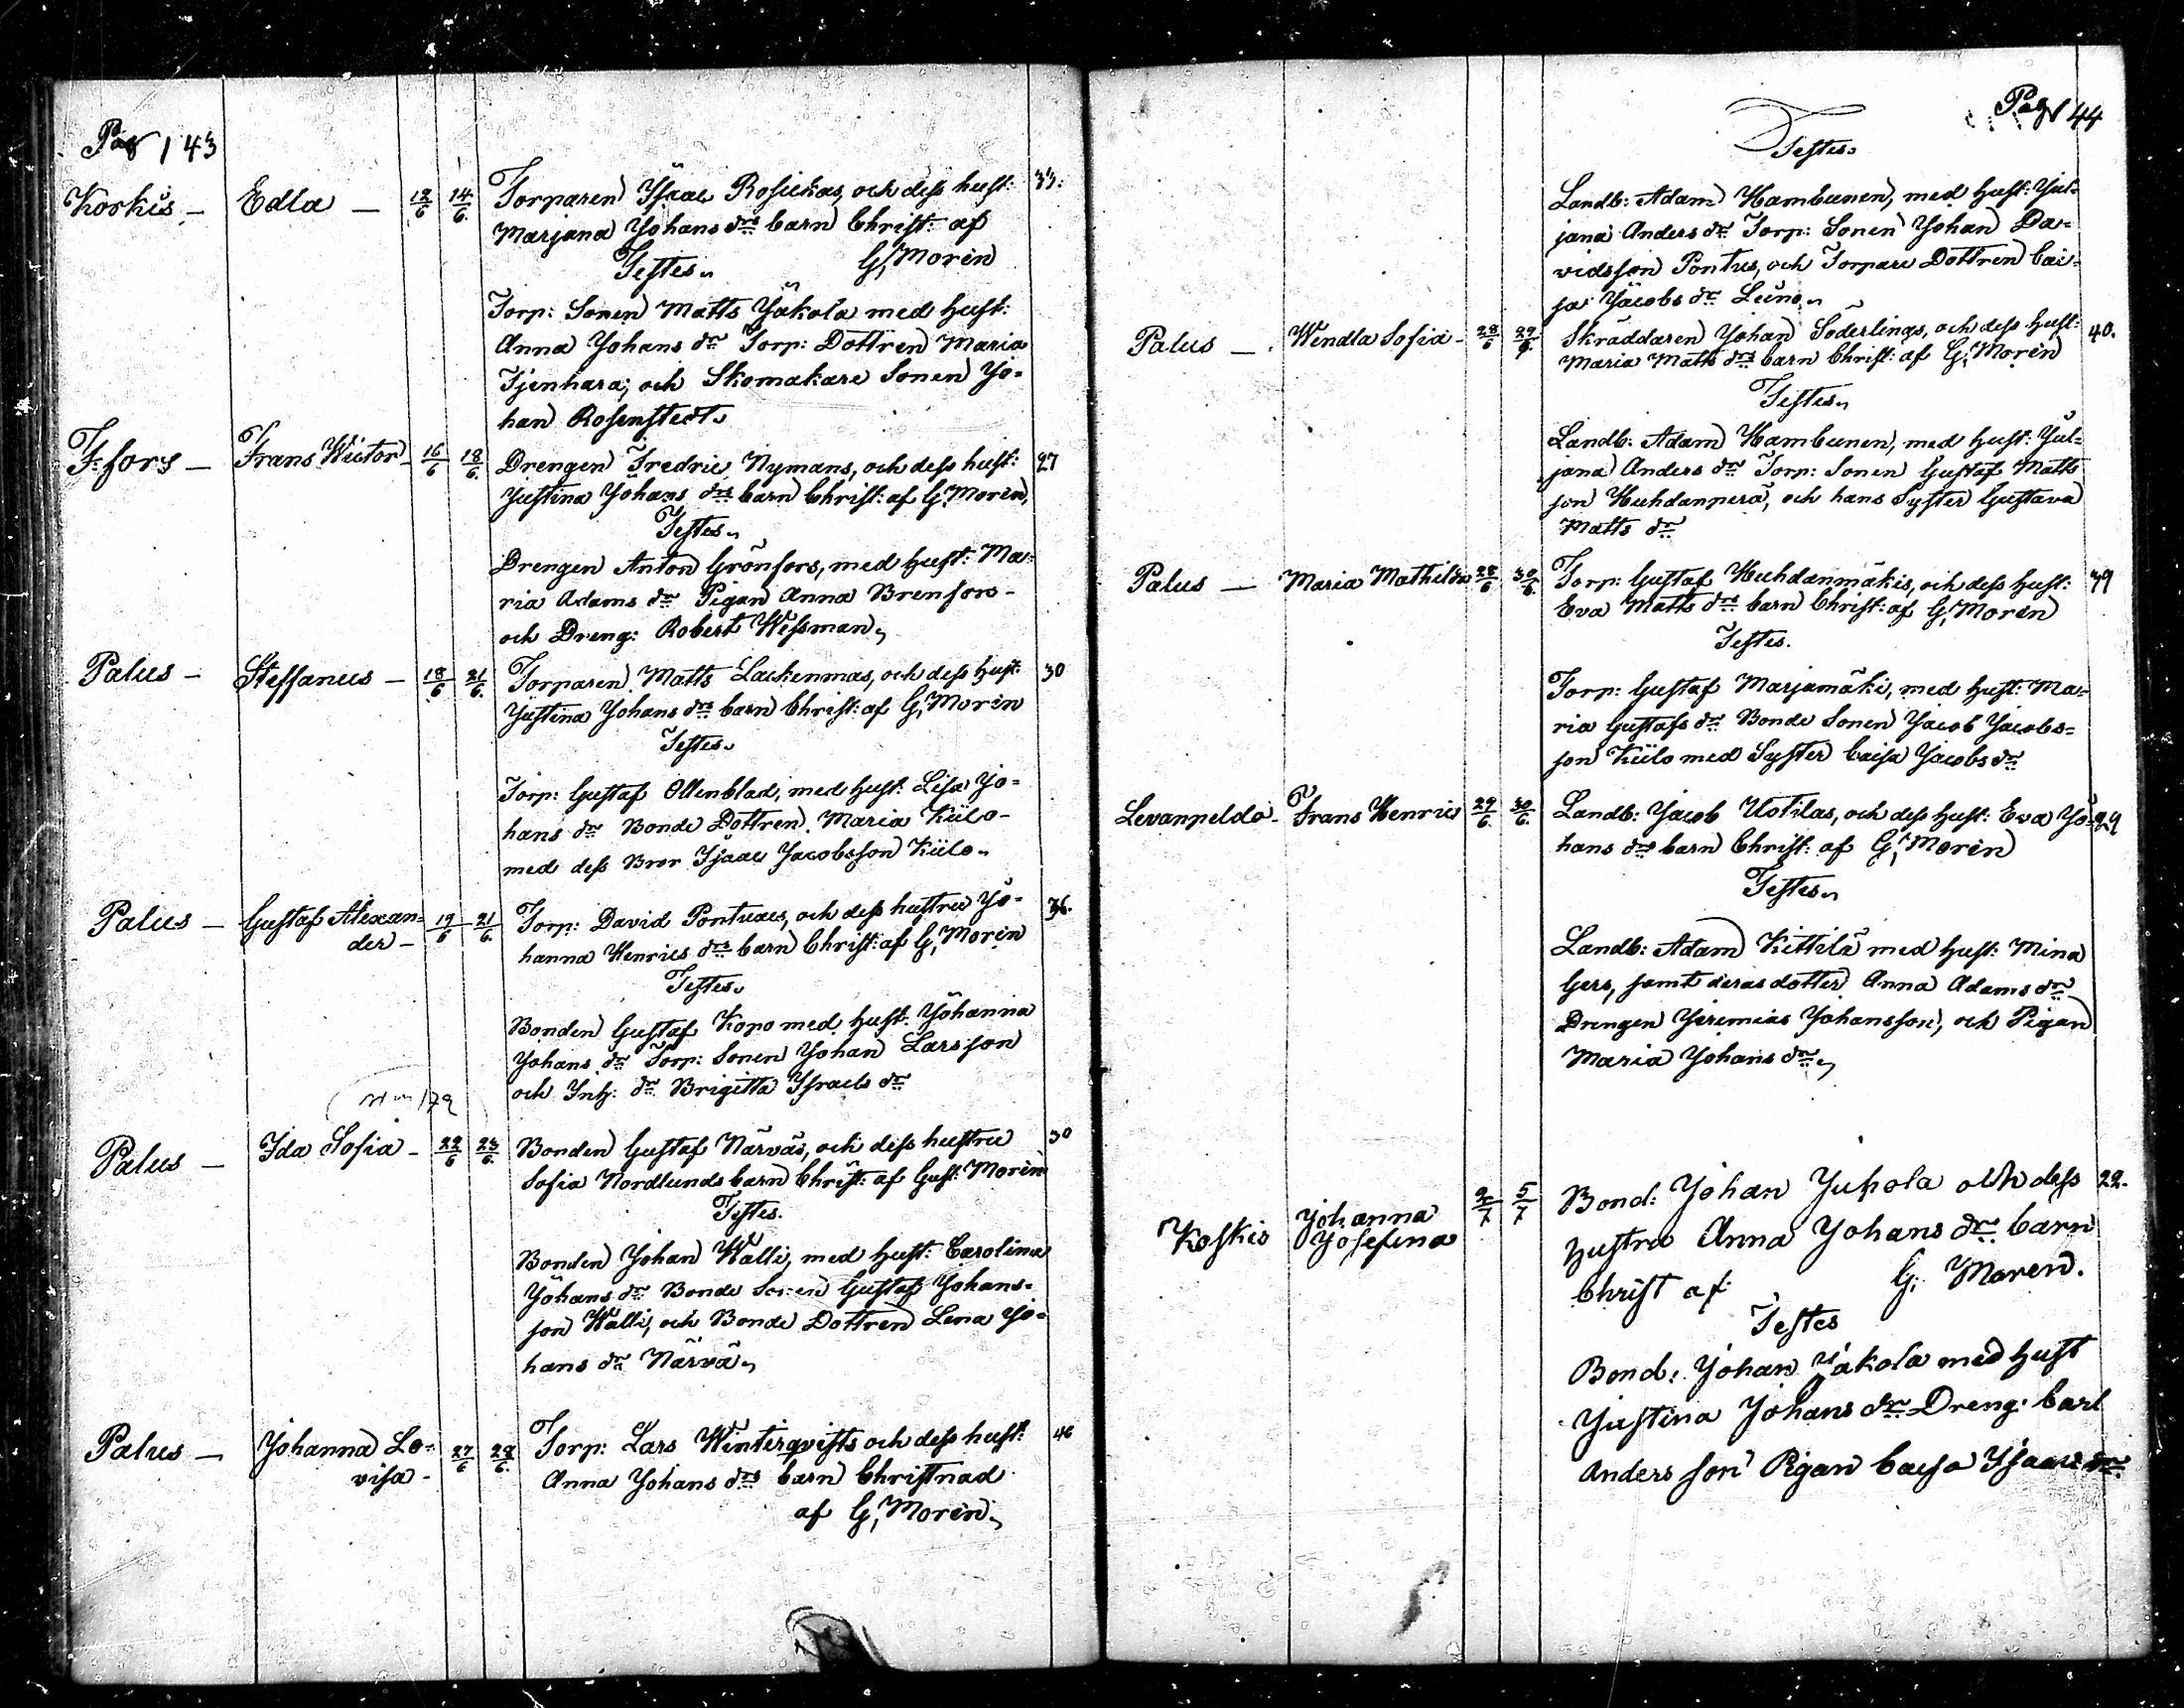 Pag 143
Koskis — Edla — 12/6 14/6. Torparen Isaac Rosickas, och dess hust: 33.
Marjana Johans drs barn Christ: af
Testes. G. Morén
Torp: Sonen Matts Jäkola med hust:
Anna Johans dr Torp: Dottren Maria
Tjenhara, och Skomakare Sonen Jo=
han Rosenstedt.
F:fors — Frans Wictor 16/6 18/6. Drengen Fredric Nymans, och dess hust: 27
Justina Johans drs barn Christ: af G. Morén,
Testes.
Drengen Anton Grönfors, med hust: Ma=
ria Adams dr Pigan Anna Brenfors-
och Dreng: Robert Wessman,
Palus — Steffanus — 18/6 21/6. Torparen Matts Lackenmas, och dess hust: 30
Justina Johans drs barn Christ: af G. Morén
Testes.
Torp: Gustaf Ollenblad, med hust: Lisa Jo=
hans dr Bonde Dottren Maria Kiilo-
med dess Bror Isaac Jacobsson Kiilo.
Palus — Gustaf Alexan=der — 19/6 21/6. Torp: David Pontuxes, och dess hustru Jo= 36.
hanna Henrics drs barn Christ: af G. Morén
Testes.
Bonden Gustaf Kopo med hust: Johanna
Johans dr Torp: Sonen Johan Larsson
och Inh: dr Brigitta Israels dr
179
Palus — Ida Sofia — 22/6 23/6. Bonden Gustaf Närväs, och dess hustru 30
Sofia Nordlunds barn Christ: af Gust: Morén
Testes.
Bonden Johan Walli, med hust: Carolina
Johans dr Bonde Sonen Gustaf Johans=
son Walli, och Bonde Dottren Lena Jo=
hans dr Närvä,
Palus — Johanna Lo=visa — 27/6 28/6. Torp: Lars Winterqvists och dess hust: 46
Anna Johans drs barn Christnad
af G. Morén,
Pag 144
Testes.
Landb: Adam Hambunen, med hust: Jul=
jana Anders dr Torp: Sonen Johan Da=
vidsson Pontus, och Torpare Dottren Cai=
sa Jacobs dr Leino.
Palus — Wendla Sofia — 28/6 29/6. Skräddaren Johan Söderlings, och dess hust: 40.
Maria Matts drs barn Christ: af G. Morén
Testes.
Landb: Adam Hambunen, med hust: Jul=
jana Anders dr Torp: Sonen Gustaf Matts
son Huhdanperä, och hans Syster Gustava
Matts dr
Palus — Maria Mathilda 28/6 30/6. Torp: Gustaf Huhdanmäkis, och dess hust: 39
Eva Matts drs barn Christ: af G. Morén
Testes.
Torp: Gustaf Marjamäki, med hust: Ma=
ria Gustafs dr Bonde Sonen Jacob Jacobs=
son Kiilo med Syster Caisa Jacobs dr
Levanpeldo — Frans Henric 29/6. 30/6. Landb: Jacob Uotilas, och dess hust: Eva Jo= 29
hans drs barn Christ: af G. Morén
Testes.
Landb: Adam Kittilä med hust: Mina
Gers, samt deras dotter Anna Adams dr
Drengen Jeremias Johansson, och Pigan
Maria Johans dr,
Koskis Johanna Josefina 2/7 5/7 Bond: Johan Jupola och dess 22.
hustru Anna Johans drs barn
Christ af G. Moren.
Testes
Bond: Johan Jäkola med hust
Justina Johans dr Dreng: Carl
Anders son Pigan Caisa Isaacs dr